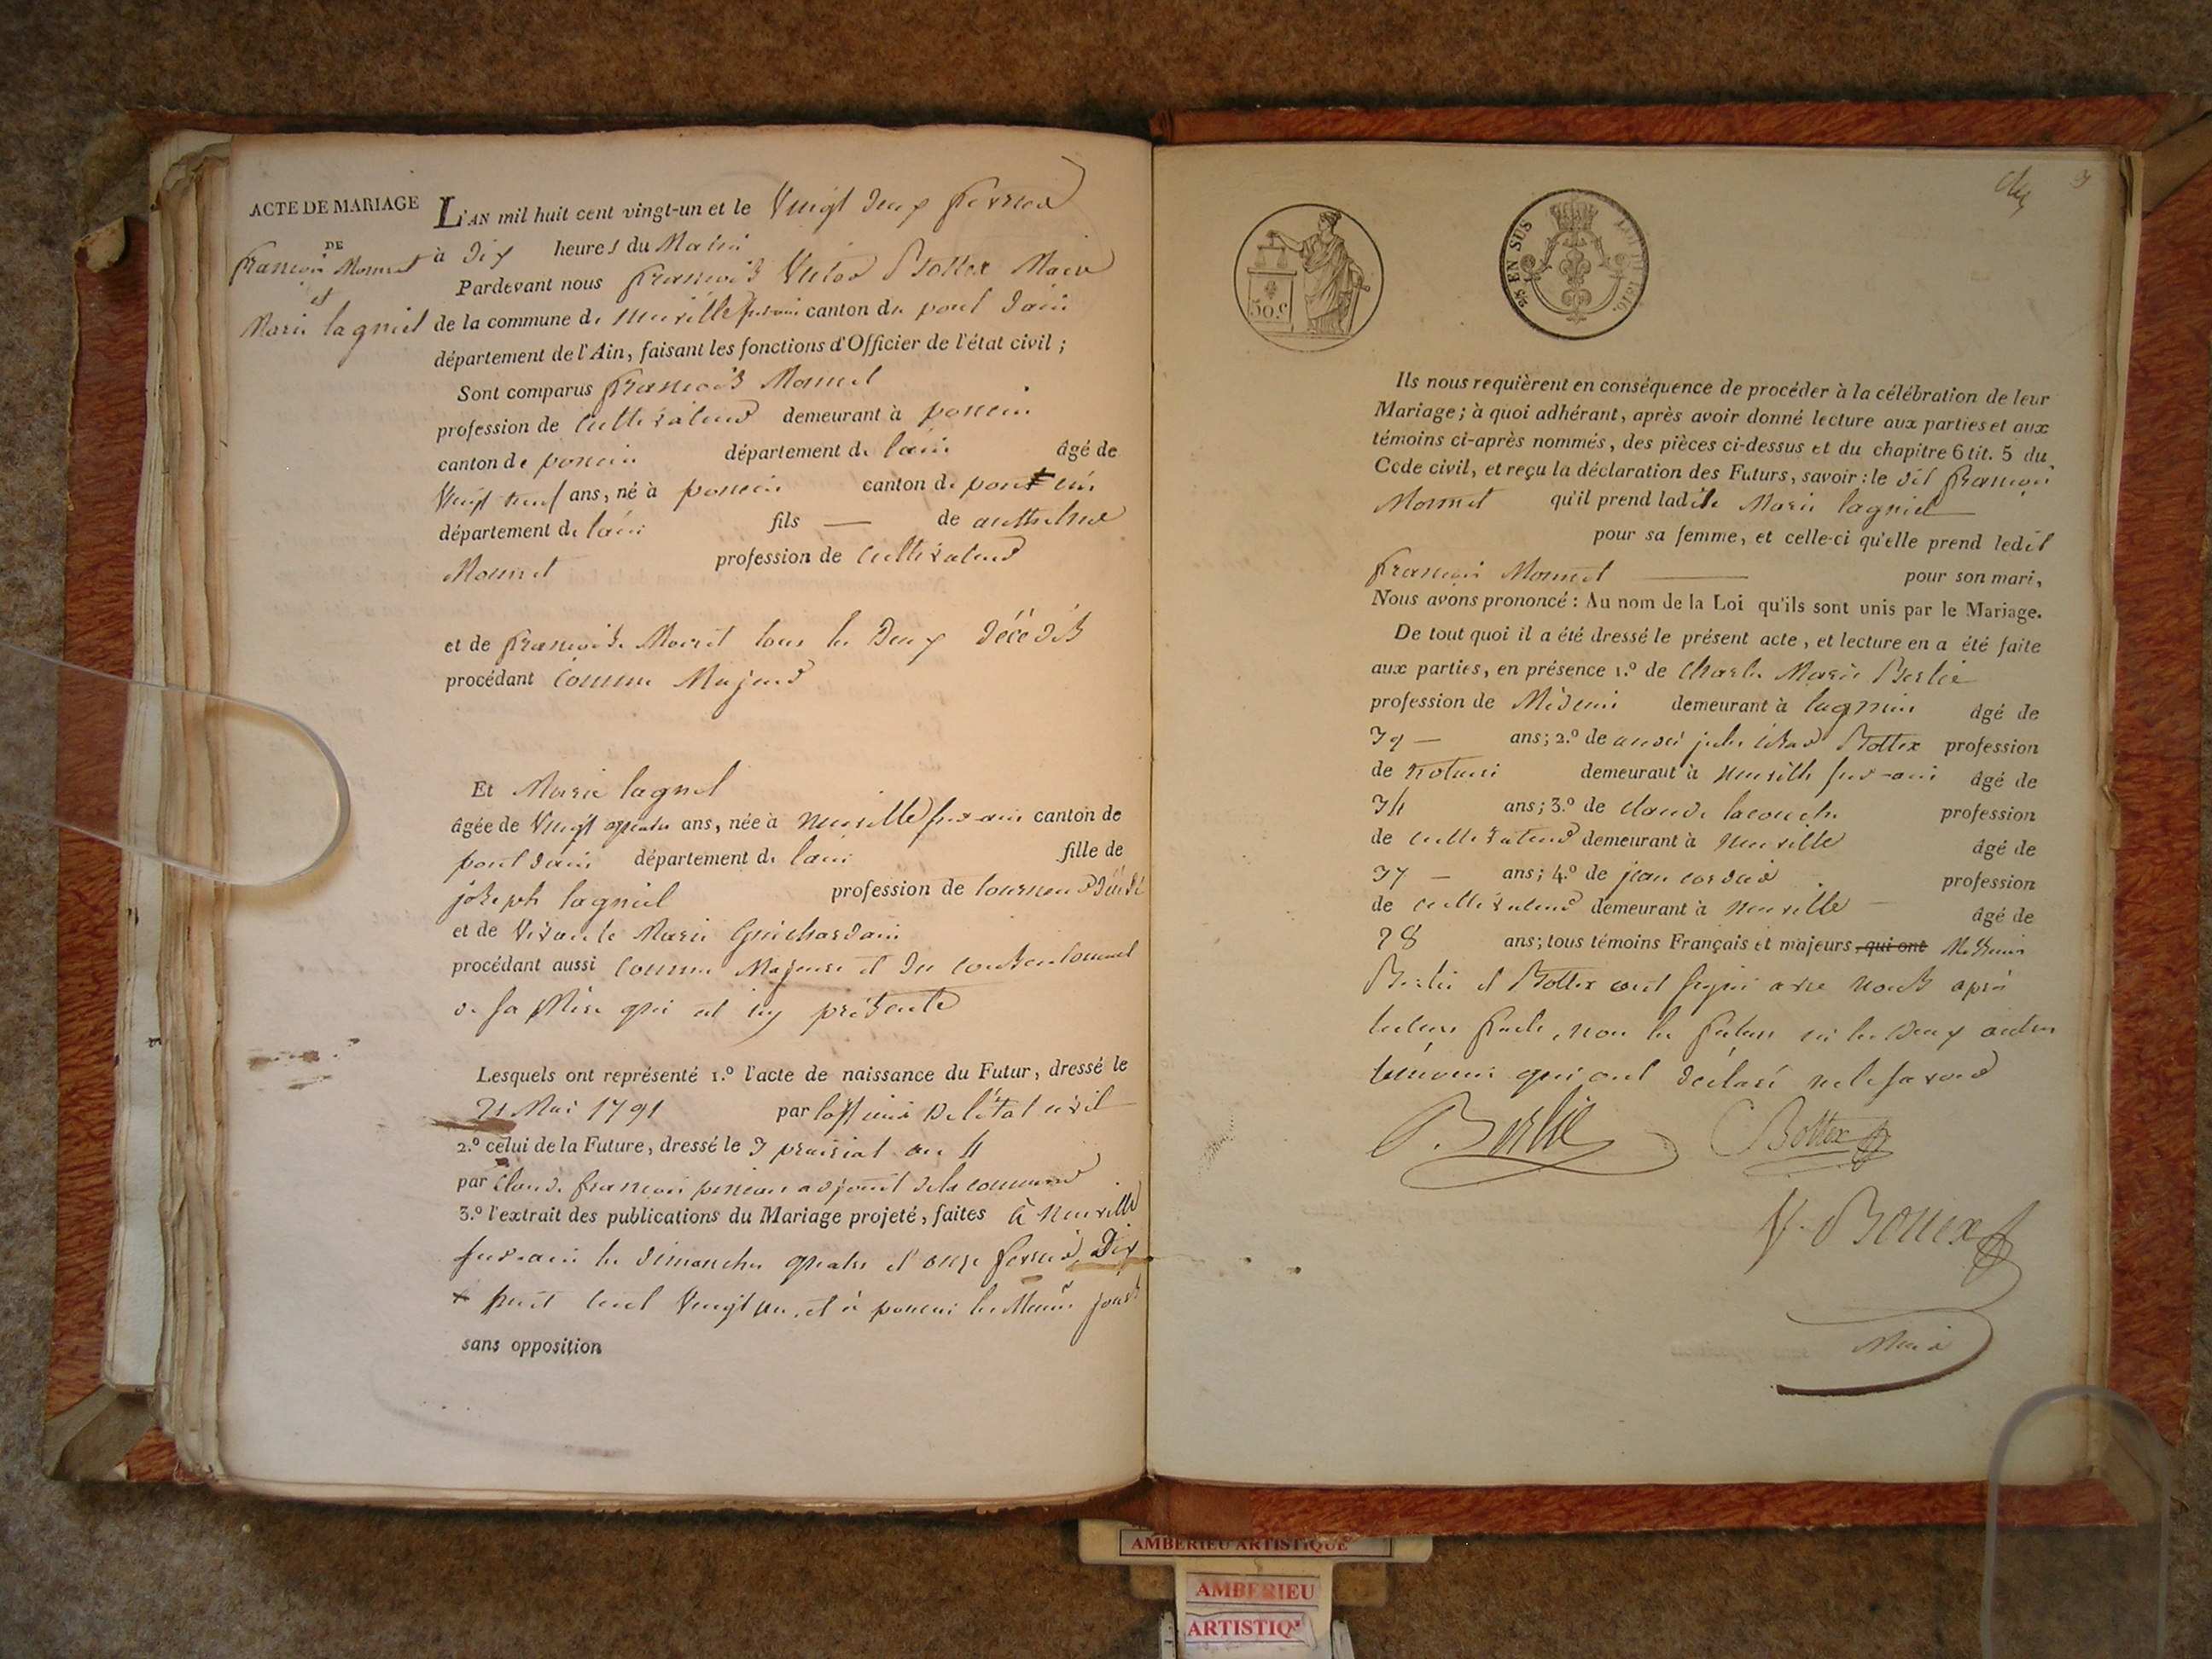 ACTE DE MARIAGE
DE
françois Monnet
et
Marie lagniel
L'AN mil huit cent vingt-un et le Vingt deux fevrier
à dix heures du Matin
Pardevant nous françois Victor Bottex Maire
de la commune de neuville sur ain canton du pont dain
département de l'Ain, faisant les fonctions d'Officier de l'état civil ;
Sont comparus françois Monnet
profession de cultivateur demeurant à poncin
canton de poncin département de lain âgé de
Vingt neuf ans, né à poncin canton de poncin
département de lain fils — de anthelme
Monnet profession de cultivateur
et de françoise tous les deux décédés
procédant comme Majeur
Et Marie lagniel
âgée de Vingt quatre ans, née à neuville sur ain canton de
pont dain département de lain fille de
joseph lagniel profession de tourneur décédé
et de Vivante Marie Guichardain
procédant aussi comme Majeure et du consentement
de sa Mère qui est icy présente
Lesquels ont représenté 1.º l'acte de naissance du Futur, dressé le
21 Mai 1791 par loffficier De l'état civil
2.º celui de la Future, dressé le 3 prairial an 4
par Claude françois adjoint de la commune
3.º l'extrait des publications du Mariage projeté, faites à Neuville
sur-ain les dimanches quatre et onze fevrier Dix
huit cent Vingt un, et à poncin les Memes jours
sans opposition
50.c
2/5 EN SUS
LOI DE 1816.
Ils nous requièrent en conséquence de procéder à la célébration de leur
Mariage ; à quoi adhérant, après avoir donné lecture aux parties et aux
témoins ci-après nommés, des pièces ci-dessus et du chapitre 6 tit. 5 du
Code civil, et reçu la déclaration des Futurs, savoir : le dit françois
Monnet qu'il prend ladite Marie lagniel
pour sa femme, et celle-ci qu'elle prend ledit
françois Monnet pour son mari,
Nous avons prononcé : Au nom de la Loi qu'ils sont unis par le Mariage.
De tout quoi il a été dressé le présent acte, et lecture en a été faite
aux parties, en présence 1.º de Charles Marie Berlie
profession de Médecin demeurant à lagnieu âgé de
39 — ans ; 2.º de andré jules Bottex profession
de notaire demeurant à neuville sur-ain âgé de
34 ans ; 3.º de claude lacouche profession
de cultivateur demeurant à neuville âgé de
37 — ans ; 4.º de jean cordier profession
de cultivateur demeurant à neuville âgé de
28 ans ; tous témoins Français et majeurs, qui ont Messieurs
Berlie et Bottex ont signé avec nous après
lecture faite, non les futurs ni les deux autres
témoins qui ont déclaré ne le savoir
Berlie Bottex
V. Bottex
Maire
AMBERIEU ARTISTIQUE
AMBERIEU
ARTISTIQ